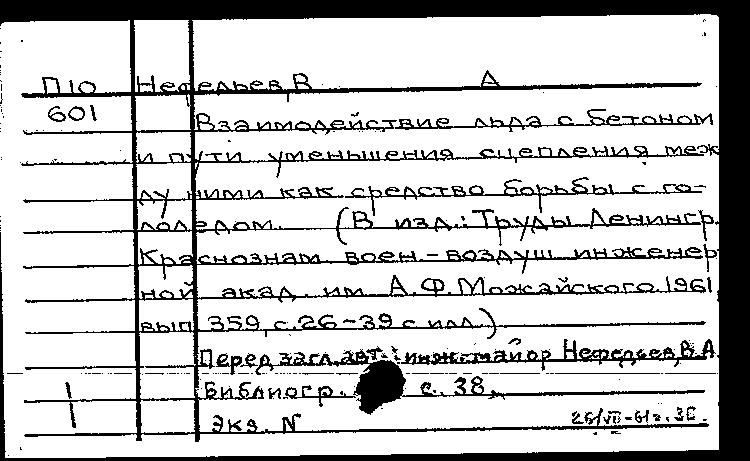 П10 Нефедьев, В А
601 Взаимодействие льда с бетоном
и пути уменьшения сцепления меж
ду ними как средство борьбы с го-
лоледом. (В изд.: Труды Ленингр.
Краснознам воен.-воздуш инженер
ной акад. им А.Ф.Можайского.1961,
вып 359, с.26-39 с илл.)
Перед загл. авт.: инж.-майор Нефедьев, В.А.
Библиогр. с. 38.
Экз. N 26/VII-61г. ЗС.